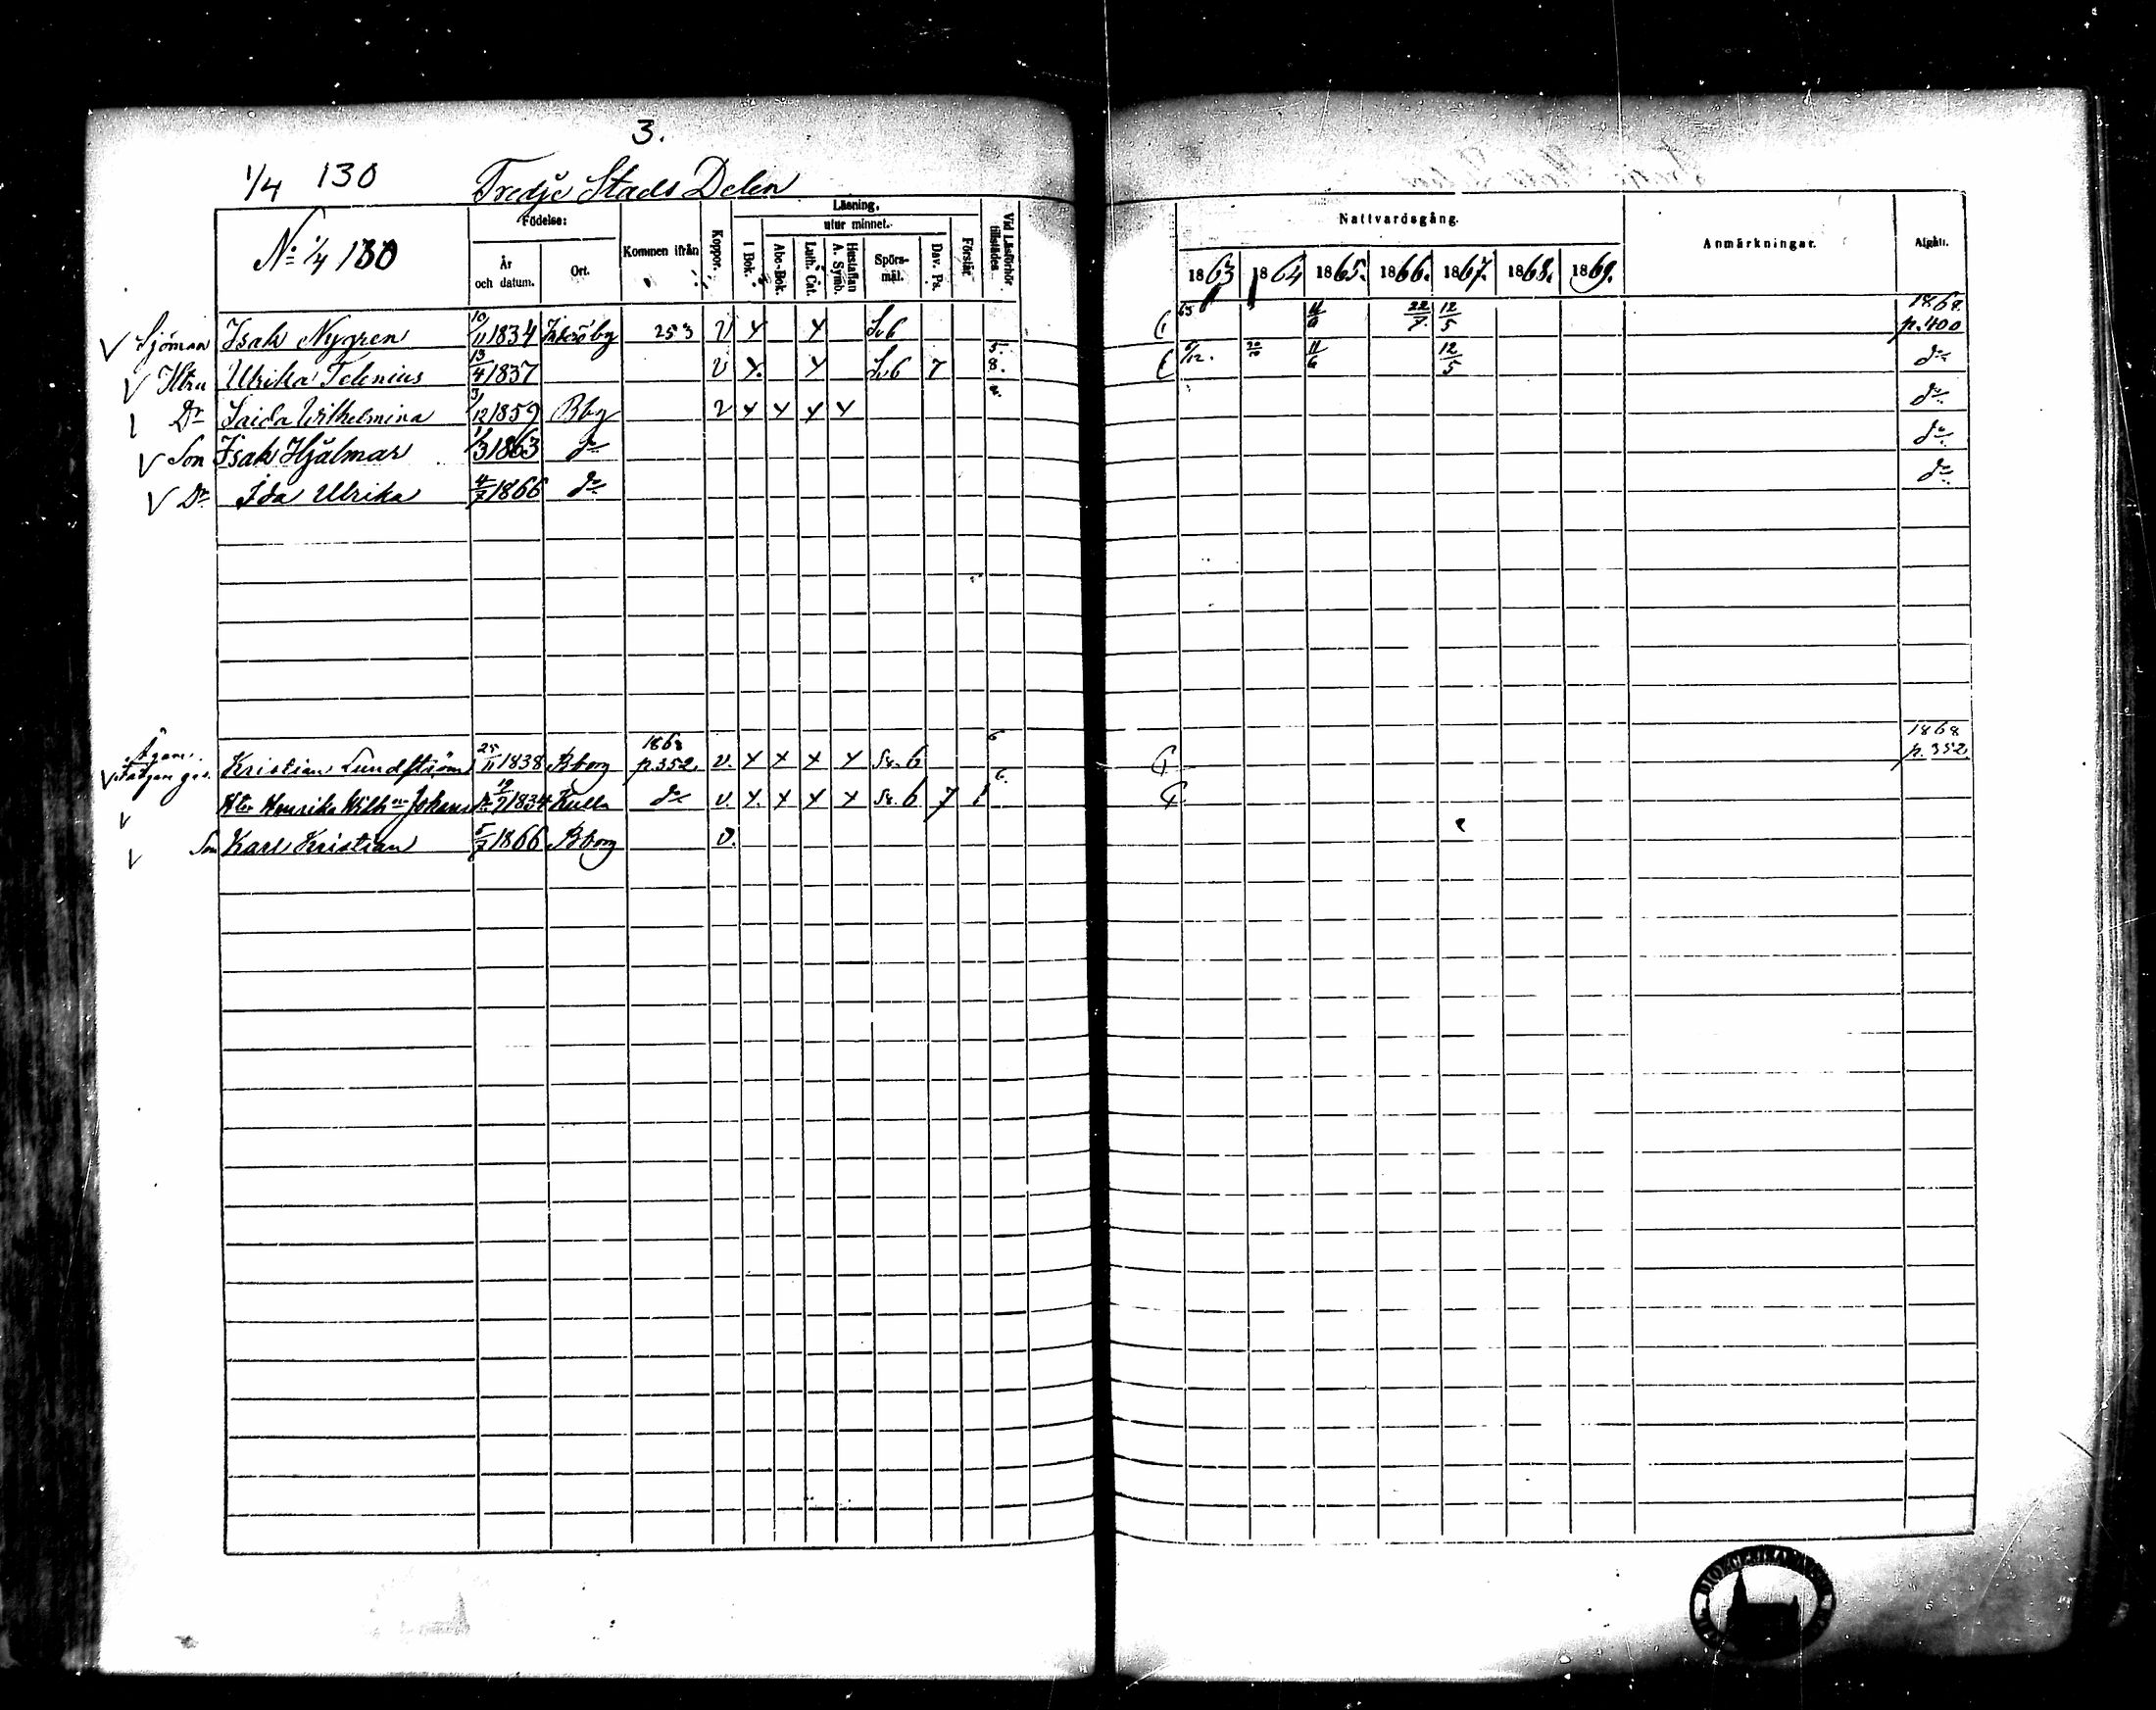 3.
1/4 130 Tredje Stads Delen
No 1/4 130
Födelse:
År och datum.
Ort.
Kommen ifrån
Koppor.
Läsning.
utur minnet.
I Bok.
Abc-Bok.
Luth. Cat.
Hustaflan A. Symb.
Spörs-mål.
Dav. Ps.
Förstår
Vid Läsförhör tillstädes
Nattvardsgång.
1863 1864 1865. 1866. 1867. 1868. 1869.
Anmärkningar.
Afgått.
Sjöman Isak Nygren 10/11 1834 253 v x x Sv 6 12/5 1868. p. 400
Hstru Ulrika Telenius 13/4 1837 v x. x Sv 6 7 8. 5/12. 20/10 11/6 12/5 do
Dr Saida Wilhelmina 3/12 1859 Bbg v x x x x do
Son Isak Hjalmar 11/3 1863 do do
Dr Ida Ulrika 4/7 1866 do do
Kristian Lundström 25/11 1838 Bborg 1868 p. 352 v. x x x x Sv. 6 6 1868 p. 352
Henrika Wilhna Johans dr 19/7 1834 Kulla do v. x. x x x Sv. 6 7 1 6.
Son Karl Kristian 5/7 1866 Bborg v.